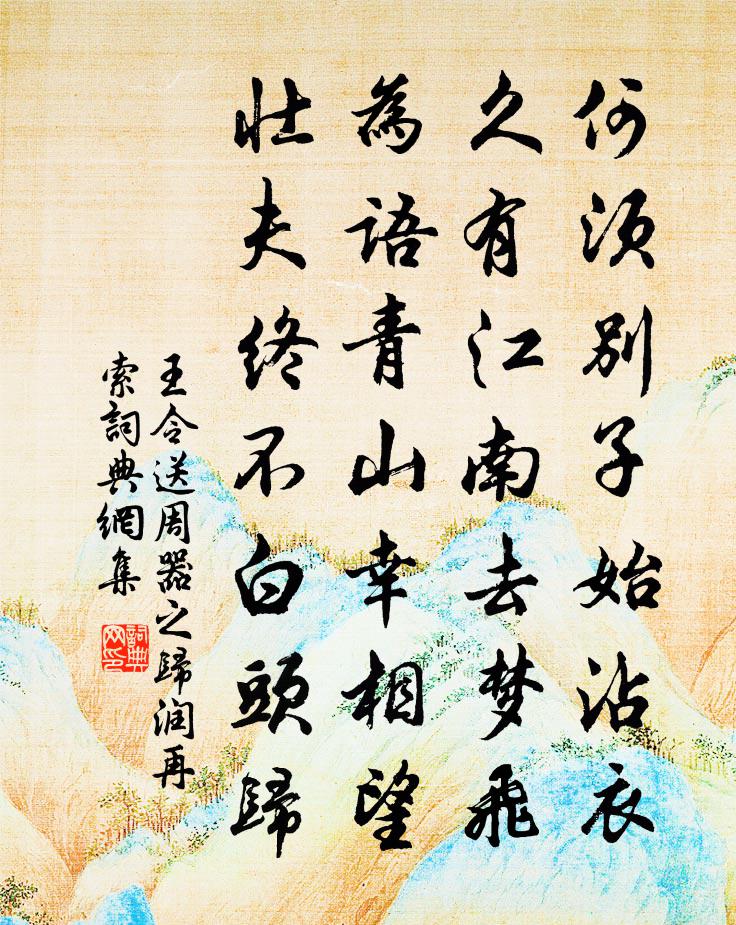 何須別子始沾衣
久有江南去梦飛
為語青山幸相望
壮夫終不白頭歸
王令送周器之歸润再
索詞典網集
詞典
网印